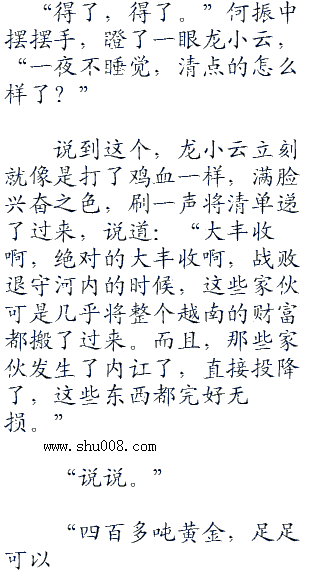 “得了，得了。”何振中
摆摆手，瞪了一眼龙小云，
“一夜不睡觉，清点的怎么
样了？”
说到这个，龙小云立刻
就像是打了鸡血一样，满脸
兴奋之色，刷一声将清单递
了过来，说道：“大丰收
啊，绝对的大丰收啊，战败
退守河内的时候，这些家伙
可是几乎将整个越南的财富
都搬了过来。而且，那些家
伙发生了内讧了，直接投降
了，这些东西都完好无
损。”
www.shu008.com
“说说。”
“四百多吨黄金，足足
可以